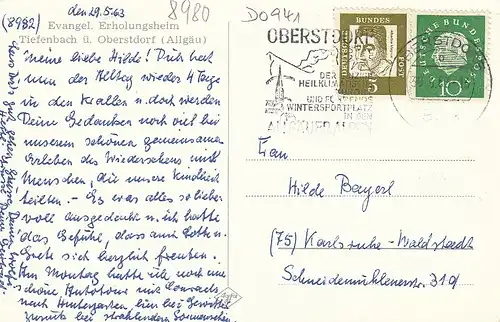 (8982)
den 29.5.63
8980
D0941
Evangel. Erholungsheim
Tiefenbach ü. Oberstdorf (Allgäu)
Meine liebe Hilde! Dich hat
nun der Alltag wieder 4 Tage
in den Krallen u. doch werden
Deine Gedanken noch viel bei
unserem schönen gemeinsamen
Erleben des Wiedersehens mit
Menschen, die unsere Kindheit
teilten. - Es war alles so lieber
voll ausgedacht u. ich hatte
das Gefühl, dass auch Lotte u.
Grete sich herzlich freuten.
Am Montag hatte ich noch eine
schöne Autotour mit Conrads
nach Hinterstein bei Gewitter
zurück bei strahlendem Sonnenschein
OBERSTDORF
DER
HEILKLIM
UND
WINTERSPORTPLATZ
IN DEN
ALLGÄUER ALPEN
DEUTSCHE BUNDESPOST
5
DEUTSCHE BUNDESPOST
10
OBERSTDORF
Frau
Hilde Bayerl
(75) Karlsruhe-Waldstadt
Schneidemühlerstr. 31g